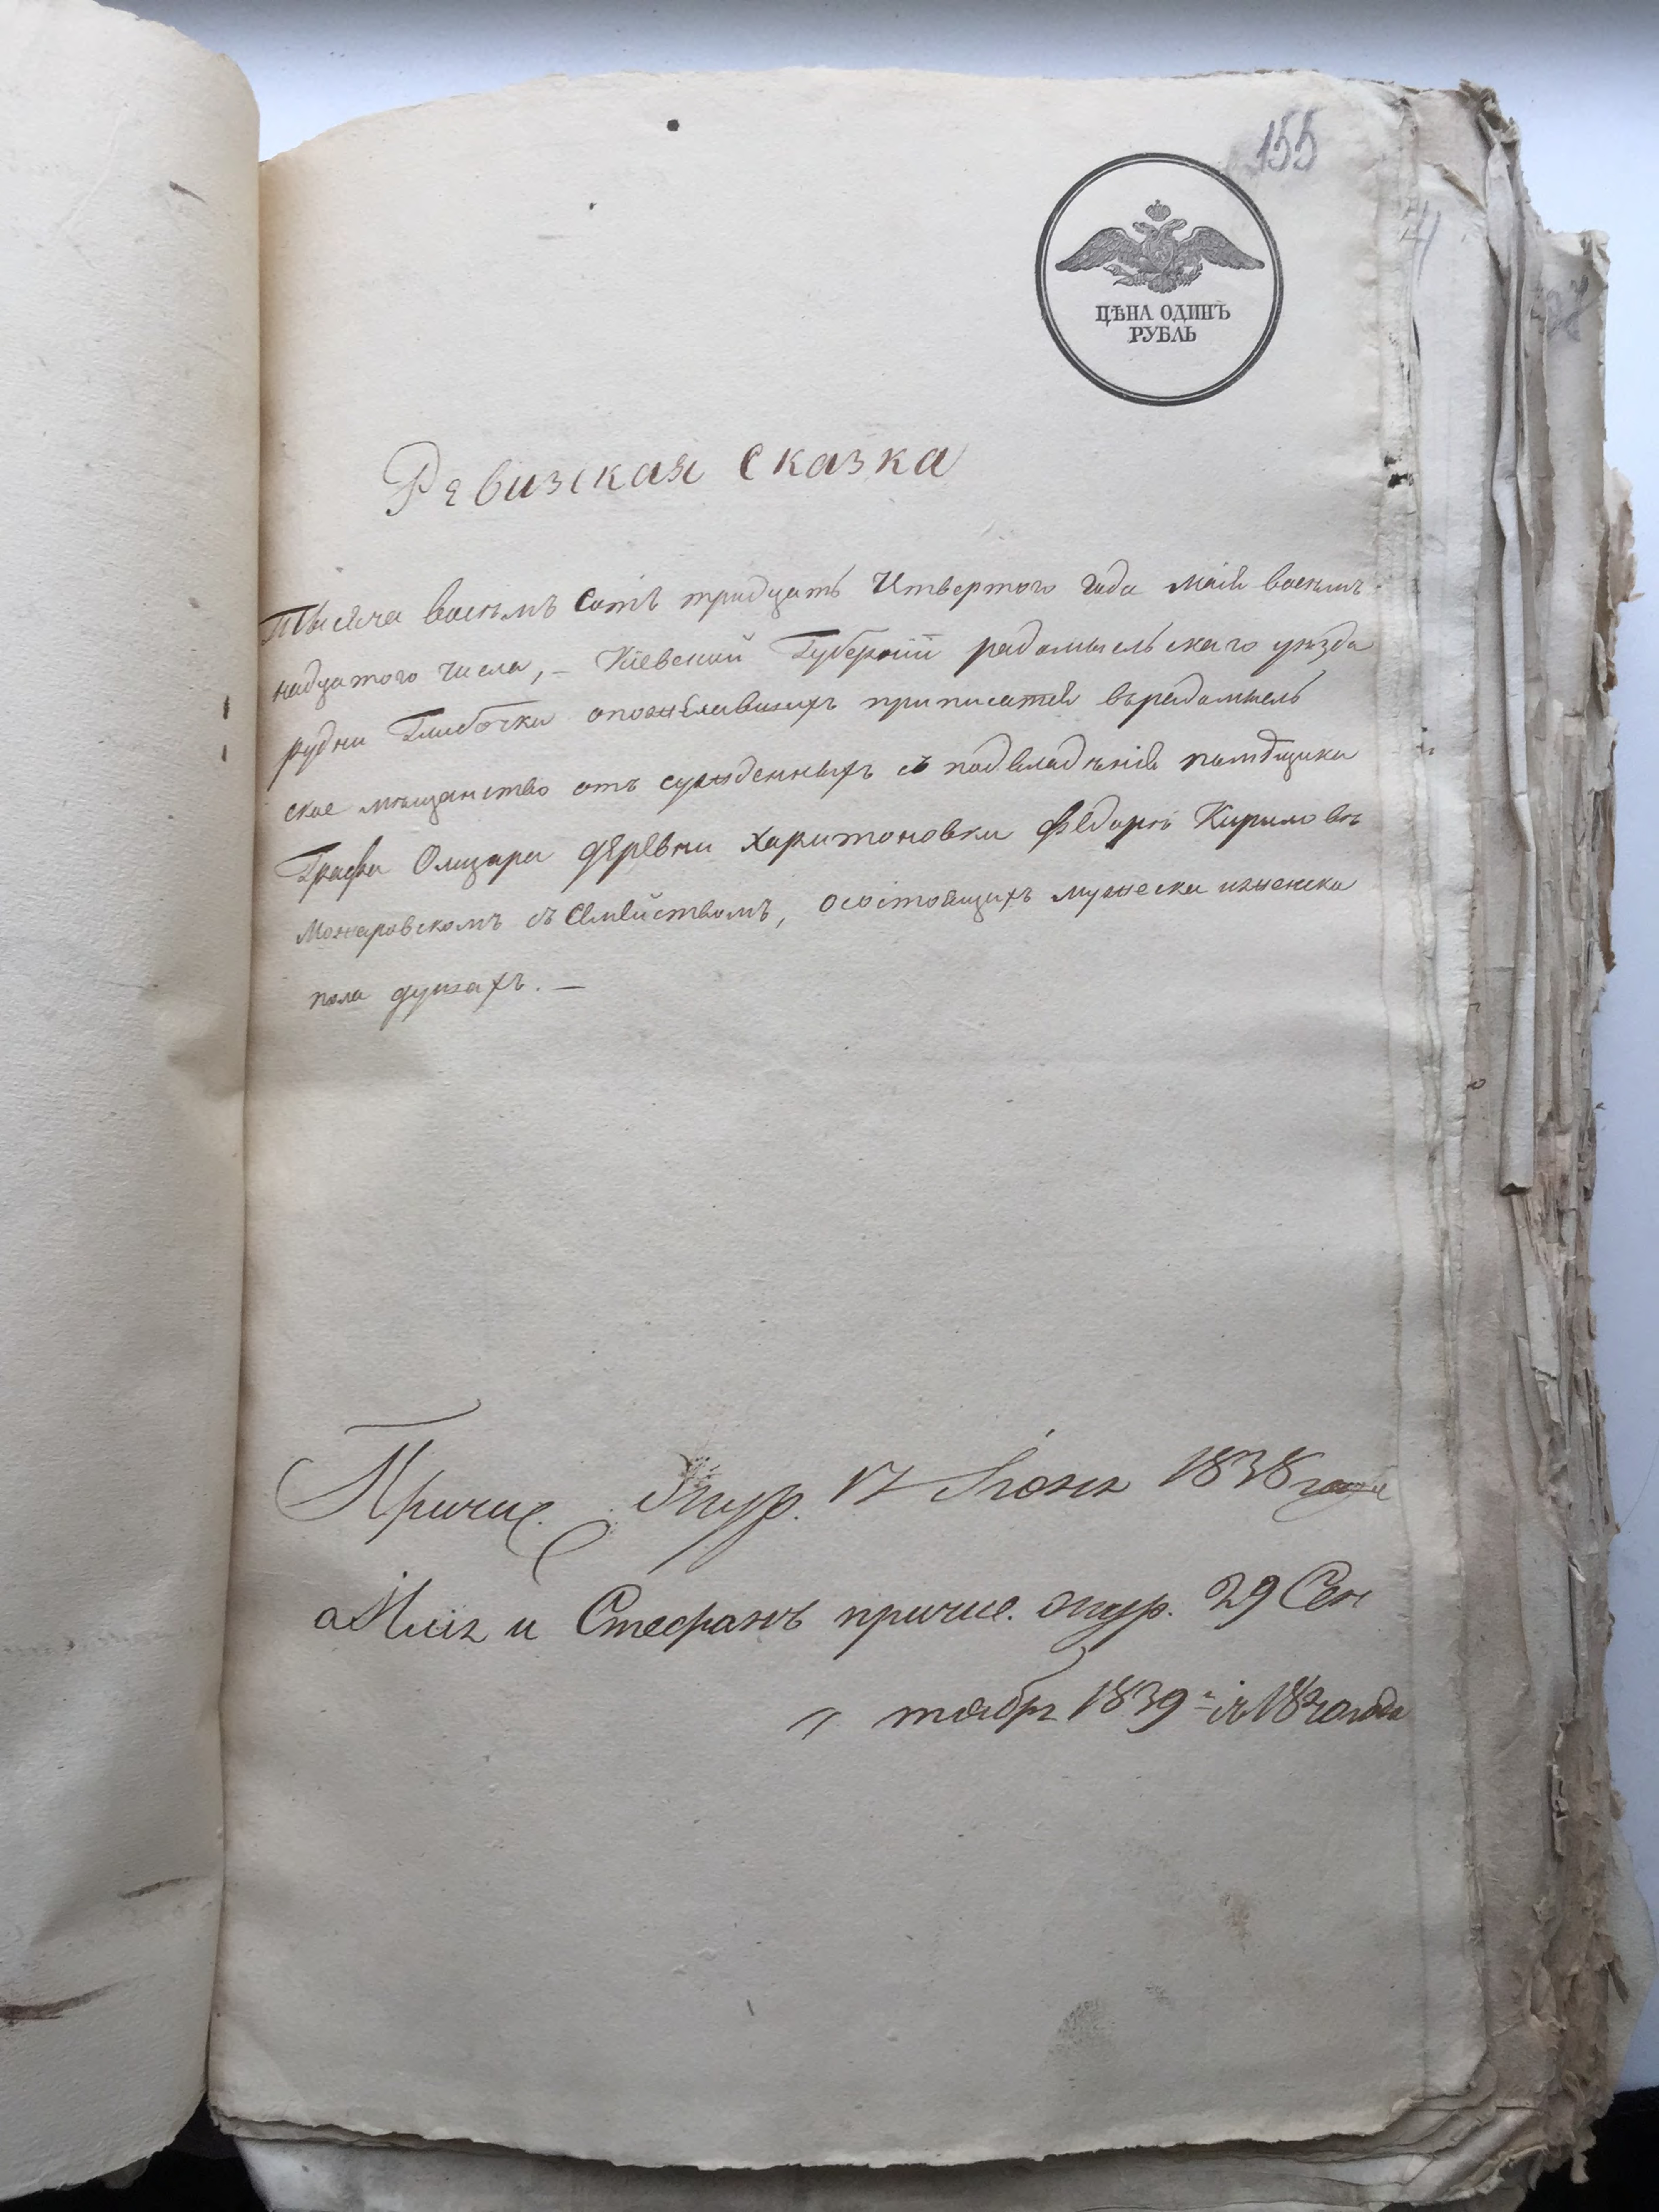 155
ЦѢНА ОДИНЪ
РУБЛЬ
Ревизская сказка
Тысяча восемъ сотъ тридцать Четвертого года мая восемъ
надцатого числа, – Кіевской Губерніи радомысльскаго уезда
рудни Глибочки опожелавшихъ приписатся въ радомысль
ское мѣщанство отъ сужденныхъ съ подвладѣнія помѣщика
Графа Олизара деревни Харитоновки Федорѣ Кирилловѣ
Можаровскомъ съ Семействомъ, осостоящихъ мужеска иженска
пола душахъ. –
Причис. 17 Іюня 1838 года
а и Стефанъ причис. 29 Сен
" тября 1839 года